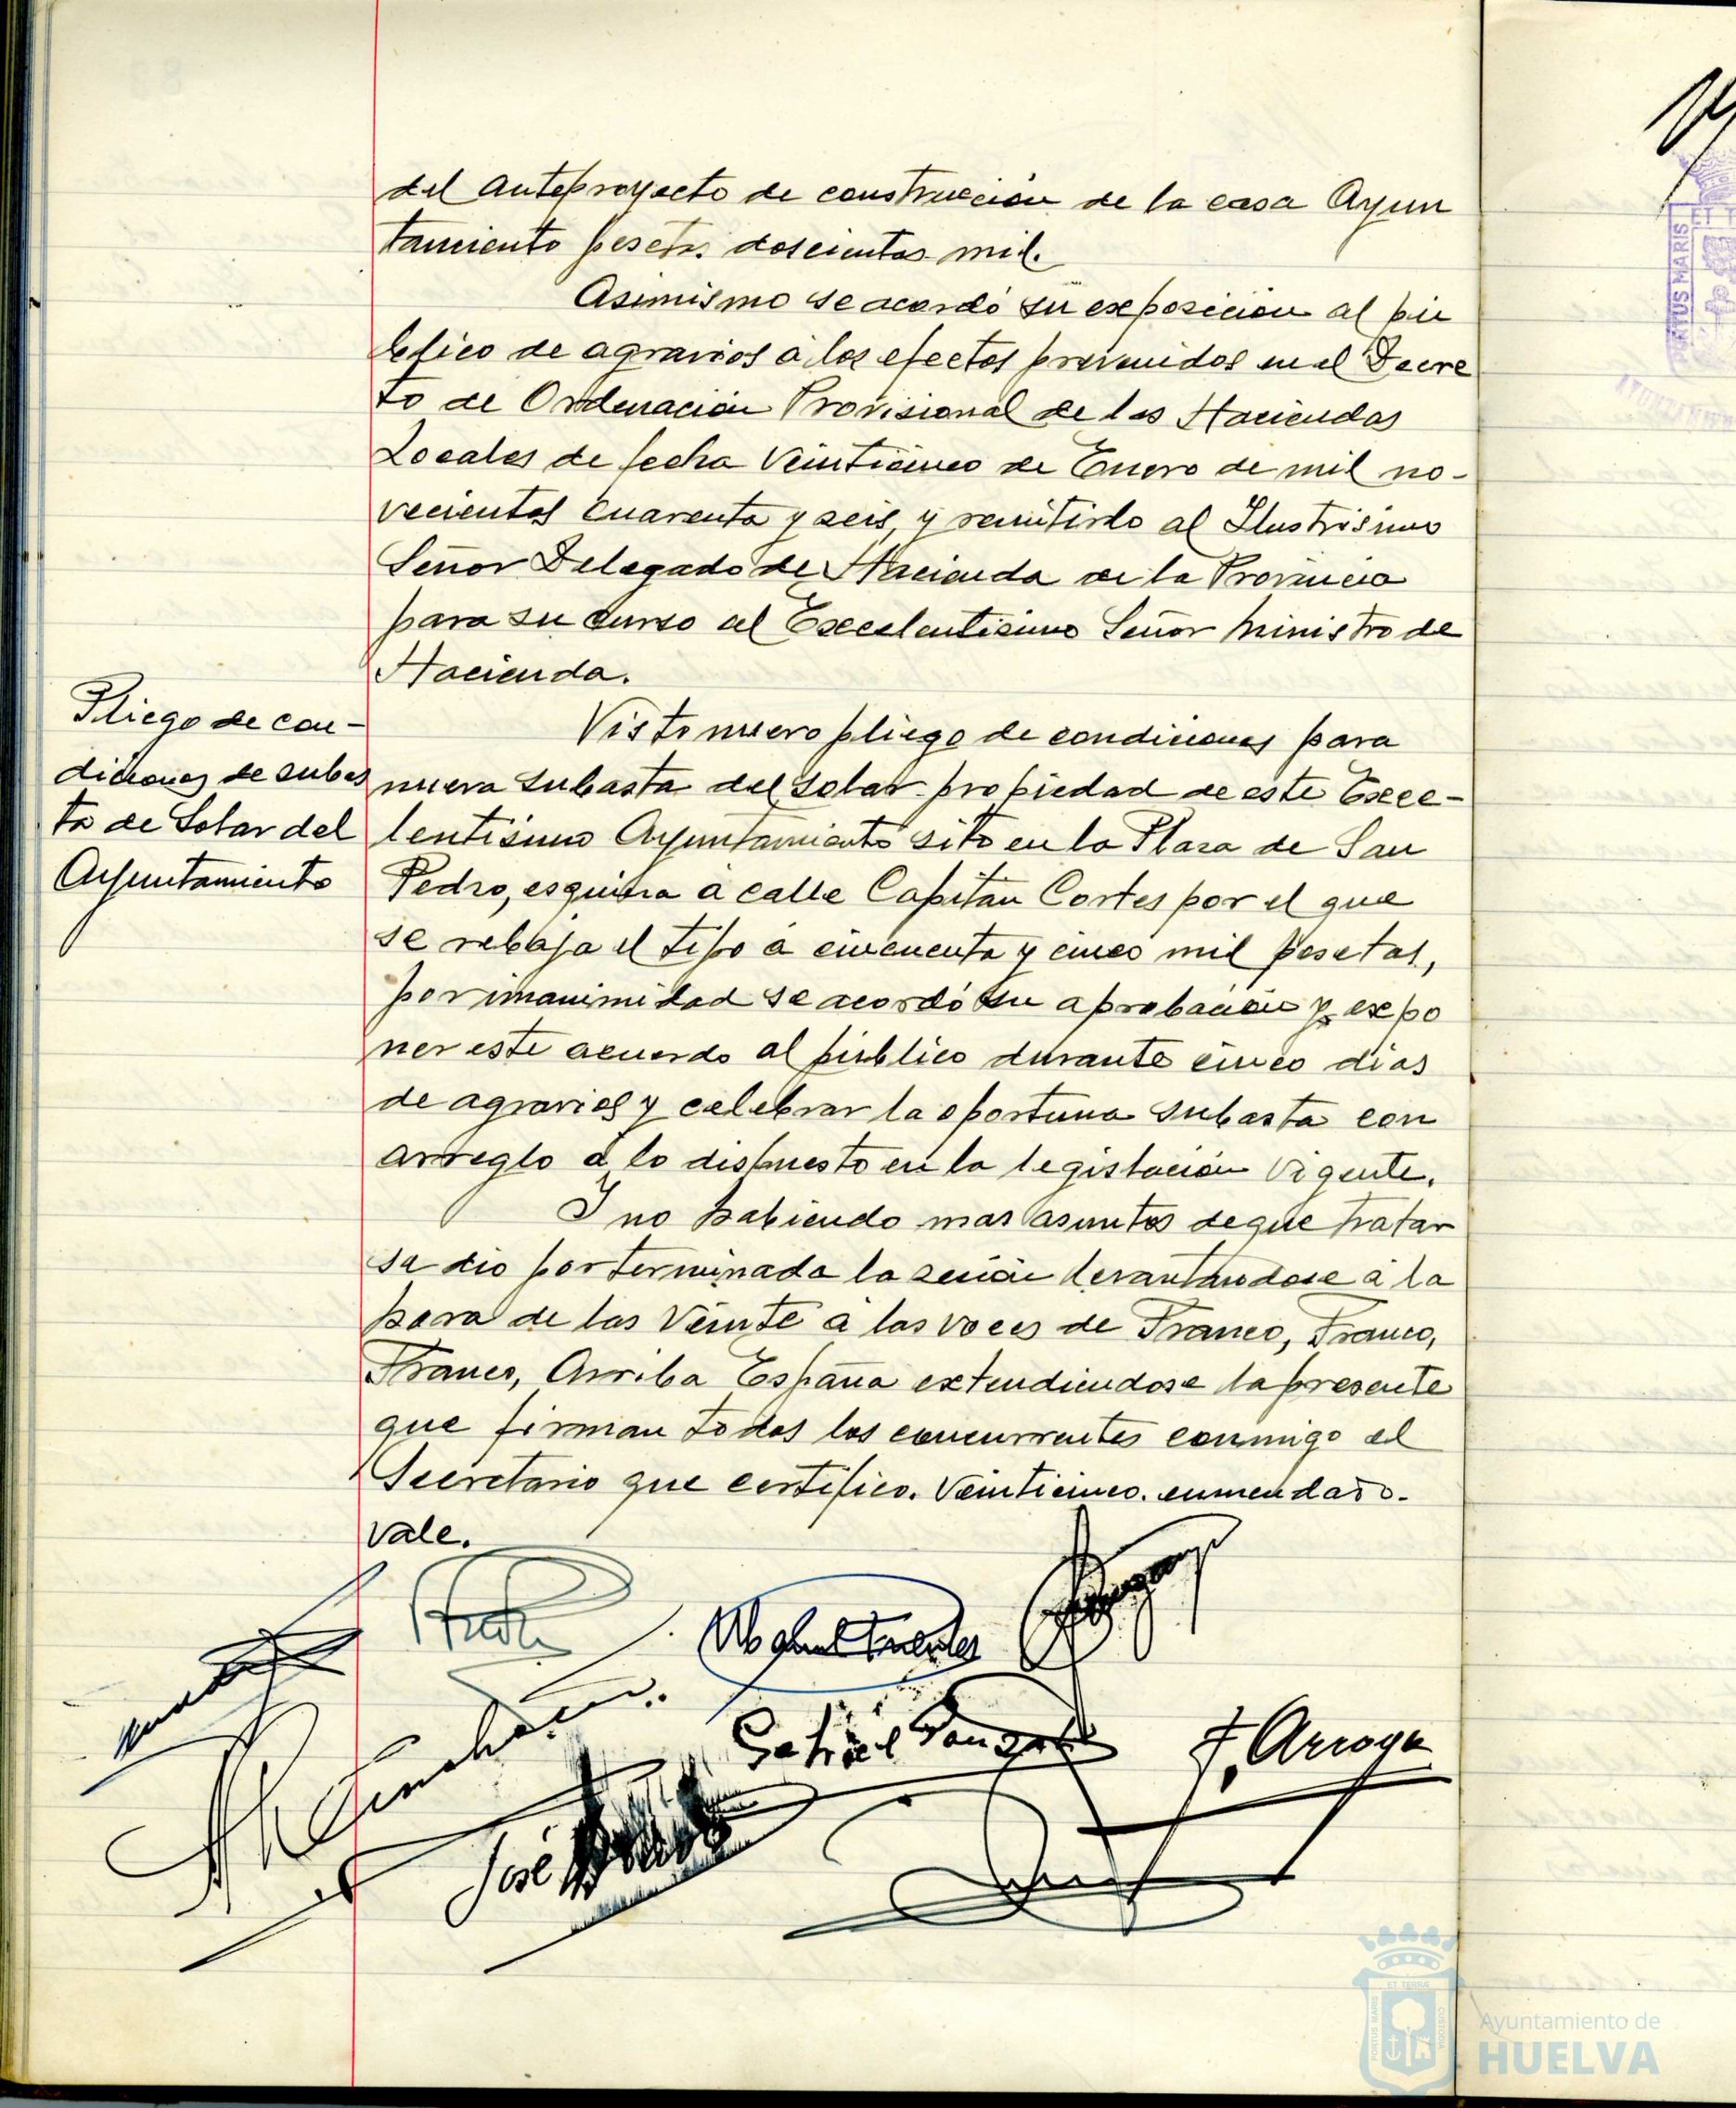 del anteproyecto de construccion de la casa Ayun
tamiento pesetas doscientas mil.
Asimismo se acordó su exposicion al pú
blico de agravios a los efectos prevenidos en el Decre
to de Ordenación Provisional de las Haciendas
Locales de fecha Veinticinco de Enero de mil no-
vecientos cuarenta y seis, y remitirlo al Ilustrisimo
Señor Delegado de Hacienda de la Provincia
para su curso al Excelentisimo Señor Ministro de
Hacienda.
Pliego de con-
diciones de subas
ta de Solar del
Ayuntamiento
Visto nuevo pliego de condiciones para
nueva subasta del solar propiedad de este Exce-
lentisimo Ayuntamiento sito en la Plaza de San
Pedro, esquina a calle Capitan Cortes por el que
se rebaja el tipo a cincuenta y cinco mil pesetas,
por unanimidad se acordó su aprobación y expo
ner este acuerdo al público durante cinco dias
de agravios y celebrar la oportuna subasta con
arreglo a lo dispuesto en la legislación vigente.
Y no habiendo mas asuntos de que tratar
se dio por terminada la sesión levantandose a la
hora de las Veinte a las voces de Franco, Franco,
Franco, Arriba España extendiendose la presente
que firman todos los concurrentes conmigo el
Secretario que certifico. Veinticinco. enmendado.
Vale.
Gabriel
F. Arroya
José
PORTUS MARIS
ET
AYUNTAMIENTO
Ayuntamiento de
HUELVA